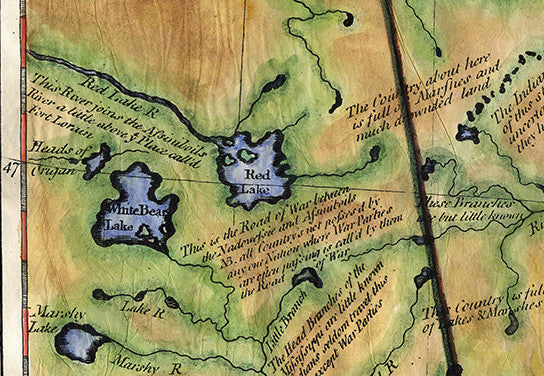 Red Lake R
This River joins the Assinivoils
River a little above ye Place call'd
Fort Lorain
Heads of
Origan
47
Red
Lake
White Bear
Lake
The Country about here
is full of Marshes and
much drownded land
The Indian
of this
the
These Branches
are but little known
This is the Road of War between
the Nadowesee and Assinivoils
NB. all Countrys not possess'd by
any one Nation where War Parties
are often passing is call'd by them
the Road of War
Lake R
Marshy
Lake
Marshy R
Little Branch
The Head Branches of the
Missisippi are little known
Indians seldom travel this
except War Parties
This Country is full
of Lakes & Marshes